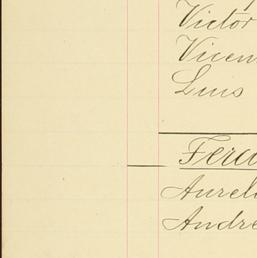 Victor
Vicen
Luis
Ferd
Aureli
Andre